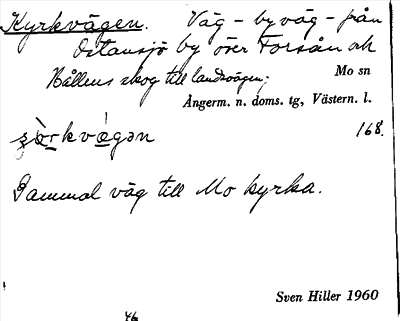 Kyrkvägen. Väg - byväg - från
Ostansjö by över Forsån och
Hållens skog till landsvägen;
Mo sn
Ångerm. n. doms. tg, Västern. l.
168.
Gammal väg till Mo kyrka.
Sven Hiller 1960
46